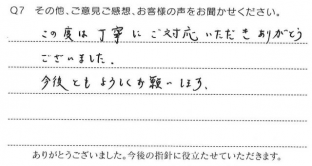 Q7 その他、ご意見ご感想、お客様の声をお聞かせください。
この度は丁寧にご対応いただきありがとう
ございました。
今後ともよろしくお願いします。
ありがとうございました。今後の指針に役立たせていただきます。